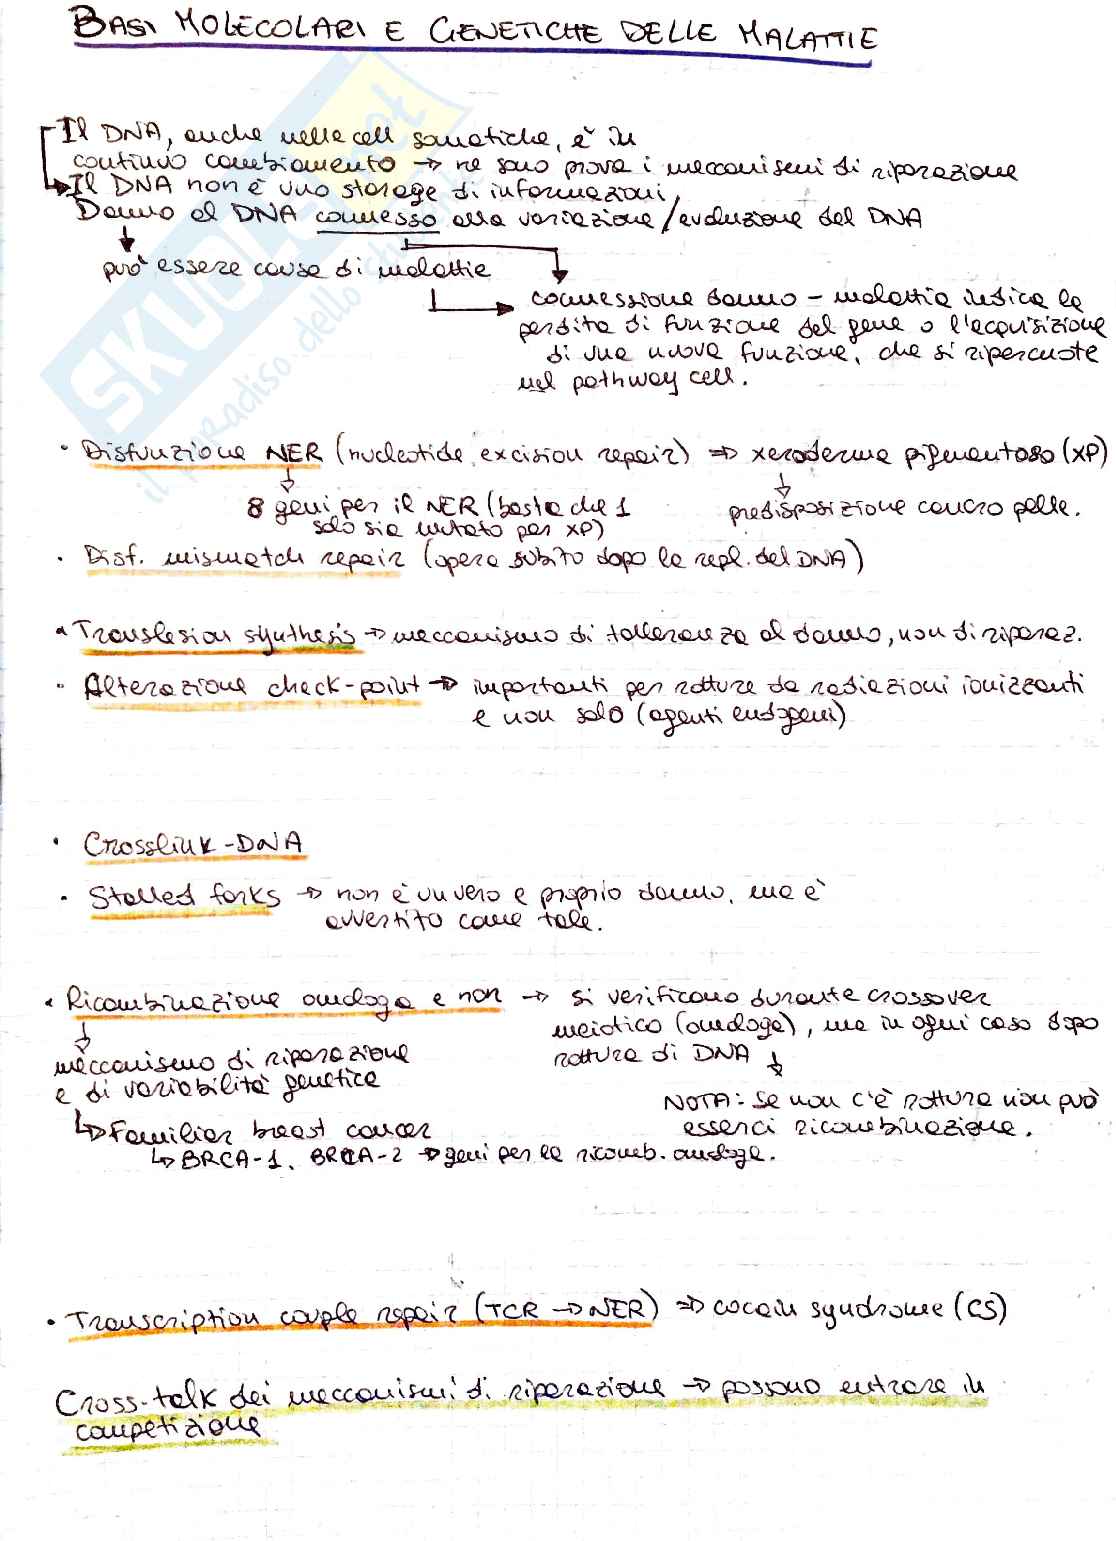 BASI MOLECOLARI E GENETICHE DELLE MALATTIE
Il DNA, anche nelle cell somatiche, è in
continuo cambiamento → ne sono prova i meccanismi di riparazione
Il DNA non è uno storage di informazioni
Danno al DNA connesso alla variazione/evoluzione del DNA
può essere causa di malattie
connessione danno - malattia indica la
perdita di funzione del gene o l'acquisizione
di una nuova funzione, che si ripercuote
nel pathway cell.
· Disfunzione NER (nucleotide excision repair) ⇒ xeroderma pigmentoso (XP)
8 geni per il NER (basta che 1
solo sia mutato per XP)
predisposizione cancro pelle.
· Disf. mismatch repair (opera subito dopo la repl. del DNA)
· Translesion synthesis → meccanismo di tolleranza al danno, non di riparaz.
· Alterazione check-point → importanti per rotture da radiazioni ionizzanti
e non solo (agenti endogeni)
· Crosslink-DNA
· Stalled forks → non è un vero e proprio danno, ma è
avvertito come tale.
· Ricombinazione omologa e non → si verificano durante crossover
meiotico (omologa), ma in ogni caso dopo
rottura di DNA
meccanismo di riparazione
e di variabilità genetica
NOTA: se non c'è rottura non può
esserci ricombinazione.
↳ Familiar breast cancer
↳ BRCA-1, BRCA-2 → geni per la ricomb. omologa.
· Transcription couple repair (TCR → NER) ⇒ cocain syndrome (CS)
Cross-talk dei meccanismi di riparazione → possono entrare in
competizione
SKUOLA.net
il paradiso dello studente